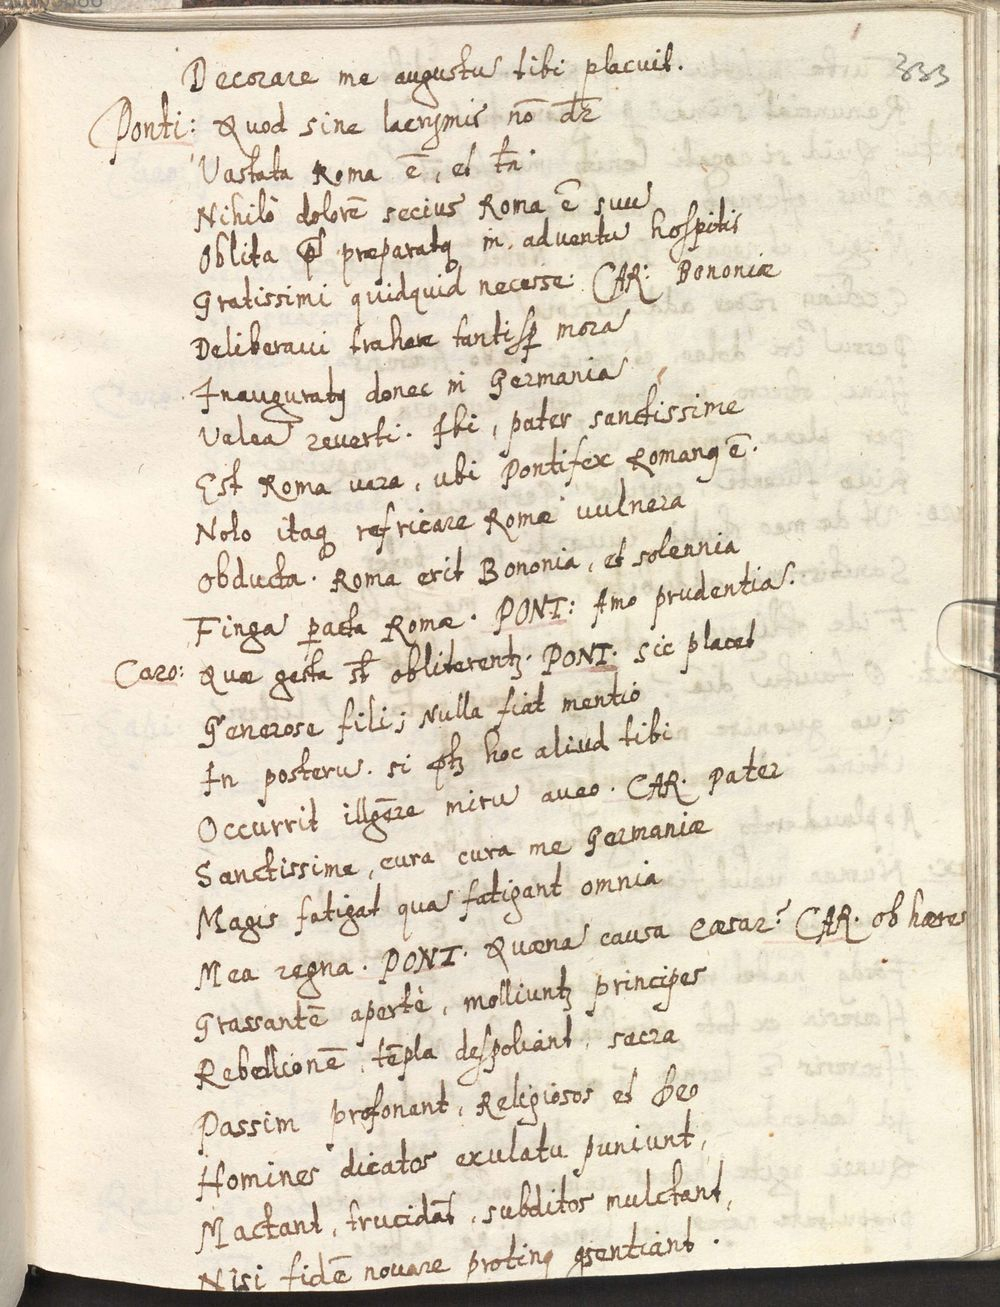 333
Decorare me augustū tibi placuit.
Ponti: Quod sine lacrymis nō dr̄
Vastata Roma ē, et tn̄
Nihilò dolorē secius Roma ē suū
Oblita p̄ præparatq in adventū hospitis
Gratissimi quidquid necesse. CAR: Bononiæ
Deliberavi trahere tantisp̱ morā
Inauguratq donec in Germaniā
Valeā reverti. Ibi, pater sanctissime
Est Roma vera, ubi Pontifex Romanq ē.
Nolo itaq refricare Romæ vulnera
Obducta. Roma erit Bononia, et solennia
Fingā p̱acta Romæ. PONT: Amo prudentiā.
Caro: Quæ gesta st̄ obliterentʒ. PONT. Sic placet
Generose fili; Nulla fiat mentio
In posterū. si hoc aliud tibi
Occurrit mirū aveo. CAR. Pater
Sanctissime, cura cura me Germaniæ
Magis fatigat quā fatigant omnia
Mea regna. PONT. Quænā causa Cæsar? CAR. ob hæres
Grassantē apertè, molliuntʒ principes
Rebellionē, tēpla despoliant, sacra
Passim profanant, Religiosos et Deo
Homines dicatos exulatu puniunt,
Mactant, trucidāt, subditos mulctant,
Nisi fidē novare protinq sentiant.